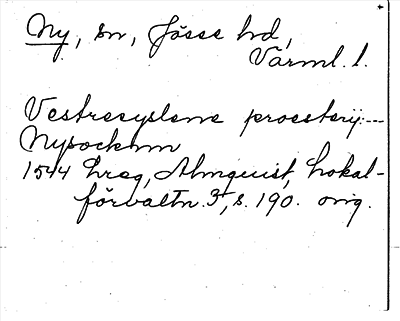 Ny, sn, Jösse hd,
Värml. l.
Vestresyslene proesterij:---
Nysocknn
1544 hreg, Almquist, Lokal-
förvaltn. 3, s. 190. orig.